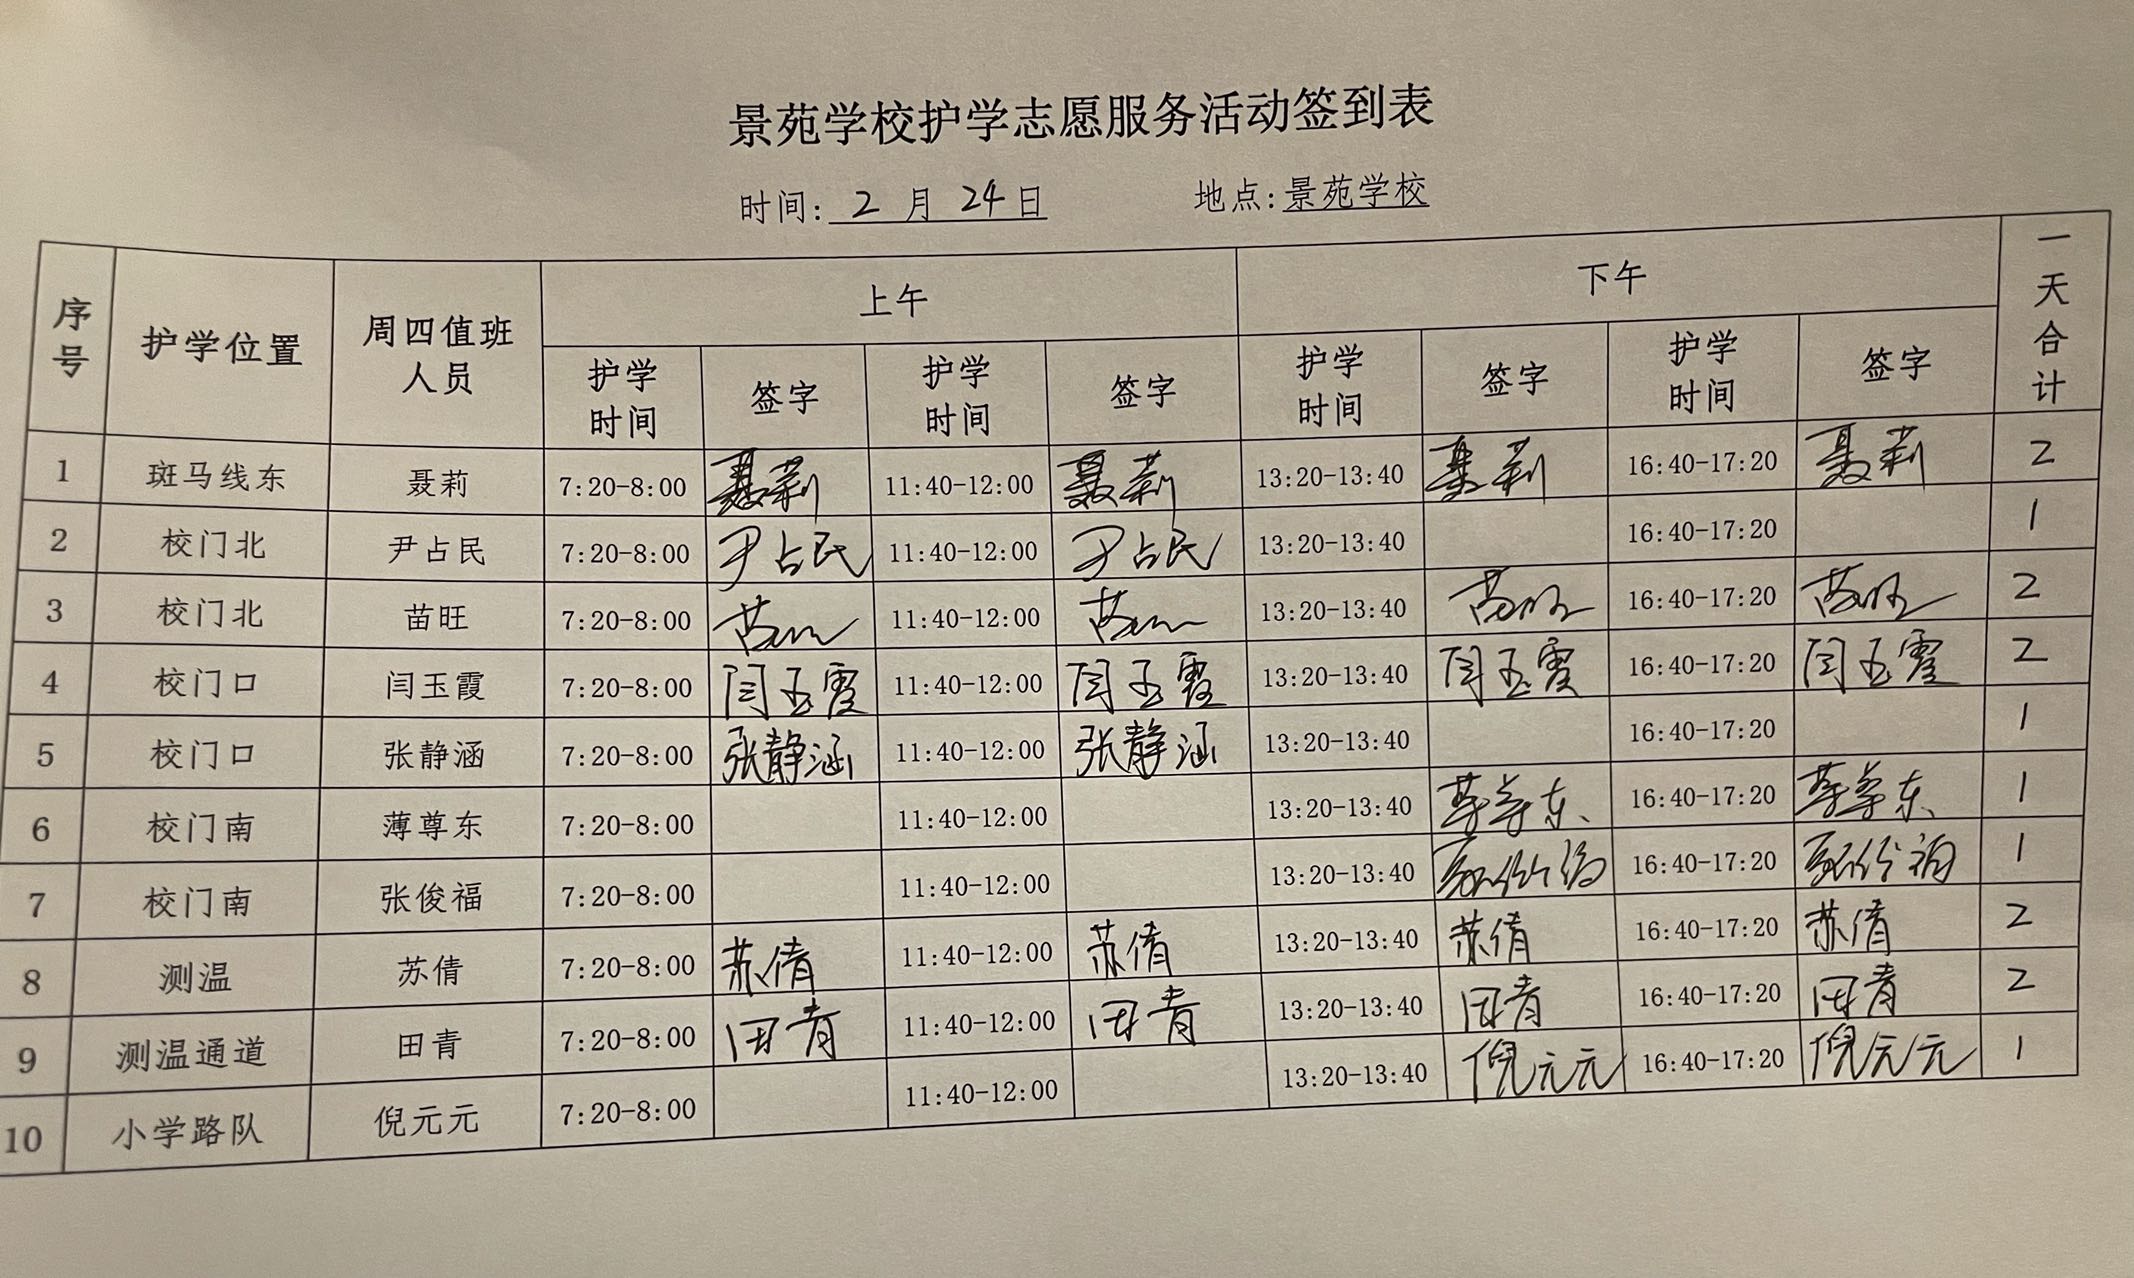 景苑学校护学志愿服务活动签到表
时间: 2 月 24 日 地点:景苑学校
序号 护学位置 周四值班人员 上午 下午 一天合计
护学时间 签字 护学时间 签字 护学时间 签字 护学时间 签字
1 斑马线东 聂莉 7:20-8:00 聂莉 11:40-12:00 聂莉 13:20-13:40 聂莉 16:40-17:20 聂莉 2
2 校门北 尹占民 7:20-8:00 尹占民 11:40-12:00 尹占民 13:20-13:40 16:40-17:20 1
3 校门北 苗旺 7:20-8:00 苗旺 11:40-12:00 苗旺 13:20-13:40 苗旺 16:40-17:20 苗旺 2
4 校门口 闫玉霞 7:20-8:00 闫玉霞 11:40-12:00 闫玉霞 13:20-13:40 闫玉霞 16:40-17:20 闫玉霞 2
5 校门口 张静涵 7:20-8:00 张静涵 11:40-12:00 张静涵 13:20-13:40 16:40-17:20 1
6 校门南 薄尊东 7:20-8:00 11:40-12:00 13:20-13:40 薄尊东 16:40-17:20 薄尊东 1
7 校门南 张俊福 7:20-8:00 11:40-12:00 13:20-13:40 张俊福 16:40-17:20 张俊福 1
8 测温 苏倩 7:20-8:00 苏倩 11:40-12:00 苏倩 13:20-13:40 苏倩 16:40-17:20 苏倩 2
9 测温通道 田青 7:20-8:00 田青 11:40-12:00 田青 13:20-13:40 田青 16:40-17:20 田青 2
10 小学路队 倪元元 7:20-8:00 11:40-12:00 13:20-13:40 倪元元 16:40-17:20 倪元元 1